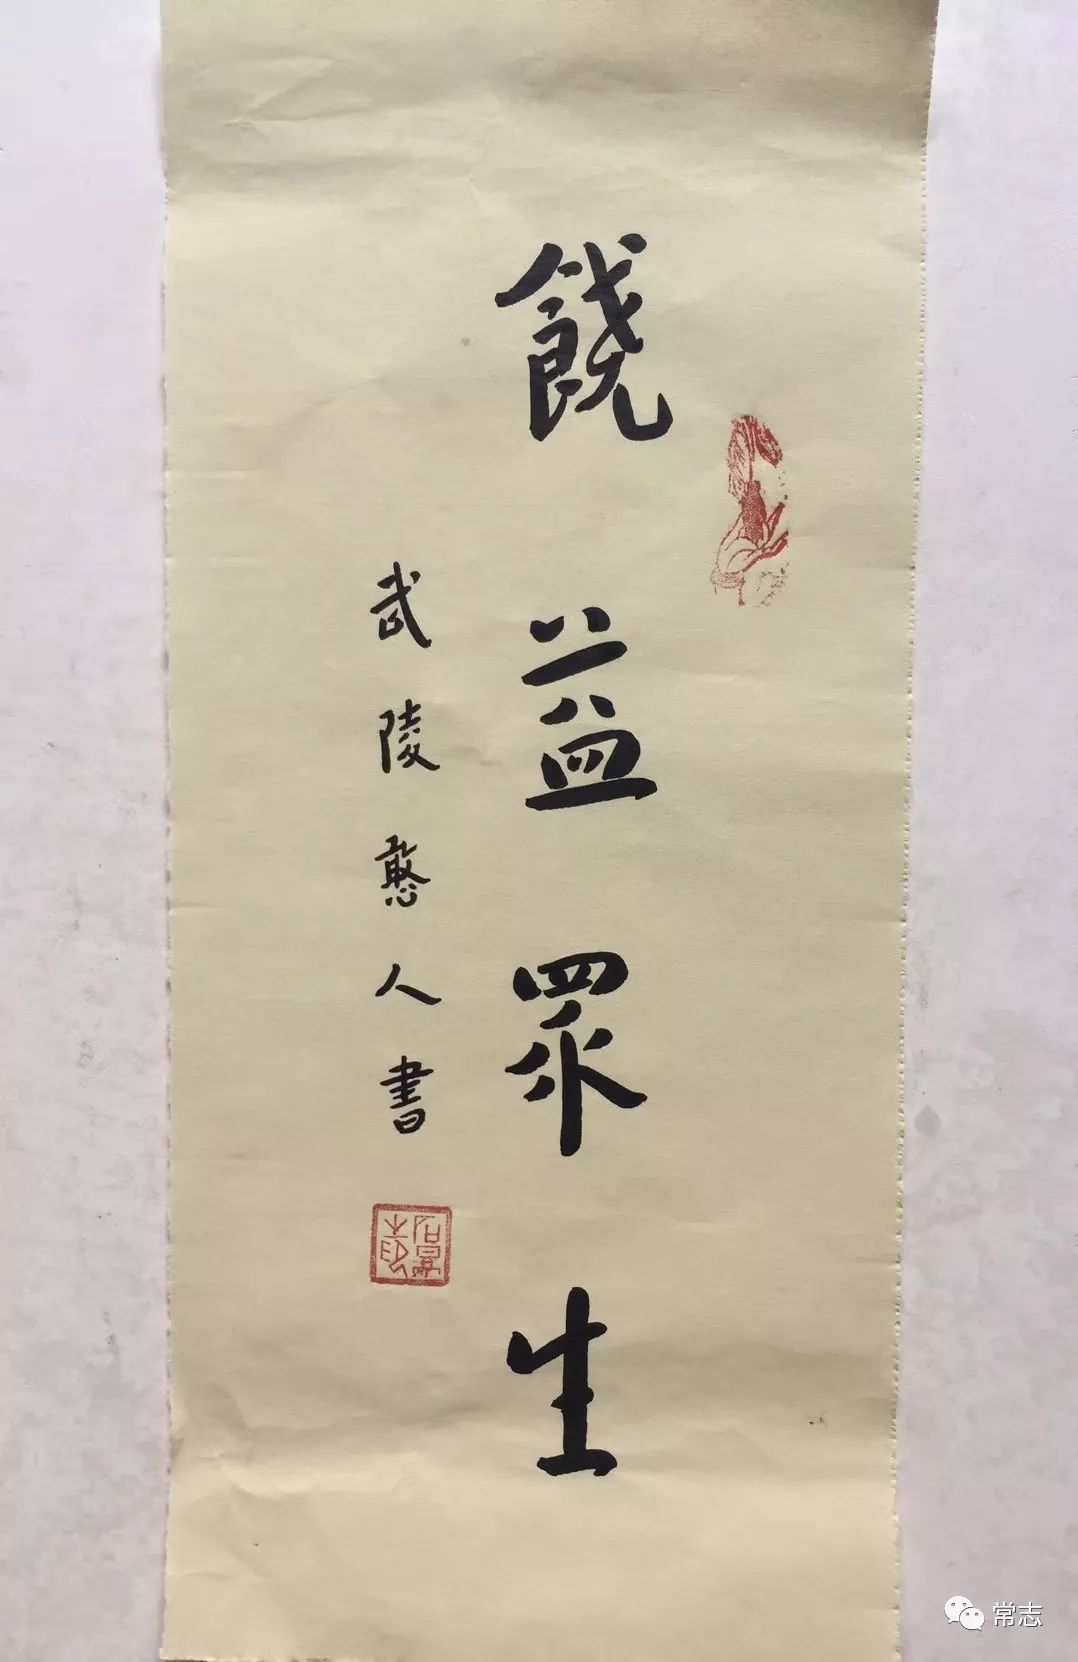 饒益眾生
武陵憨人書
常志